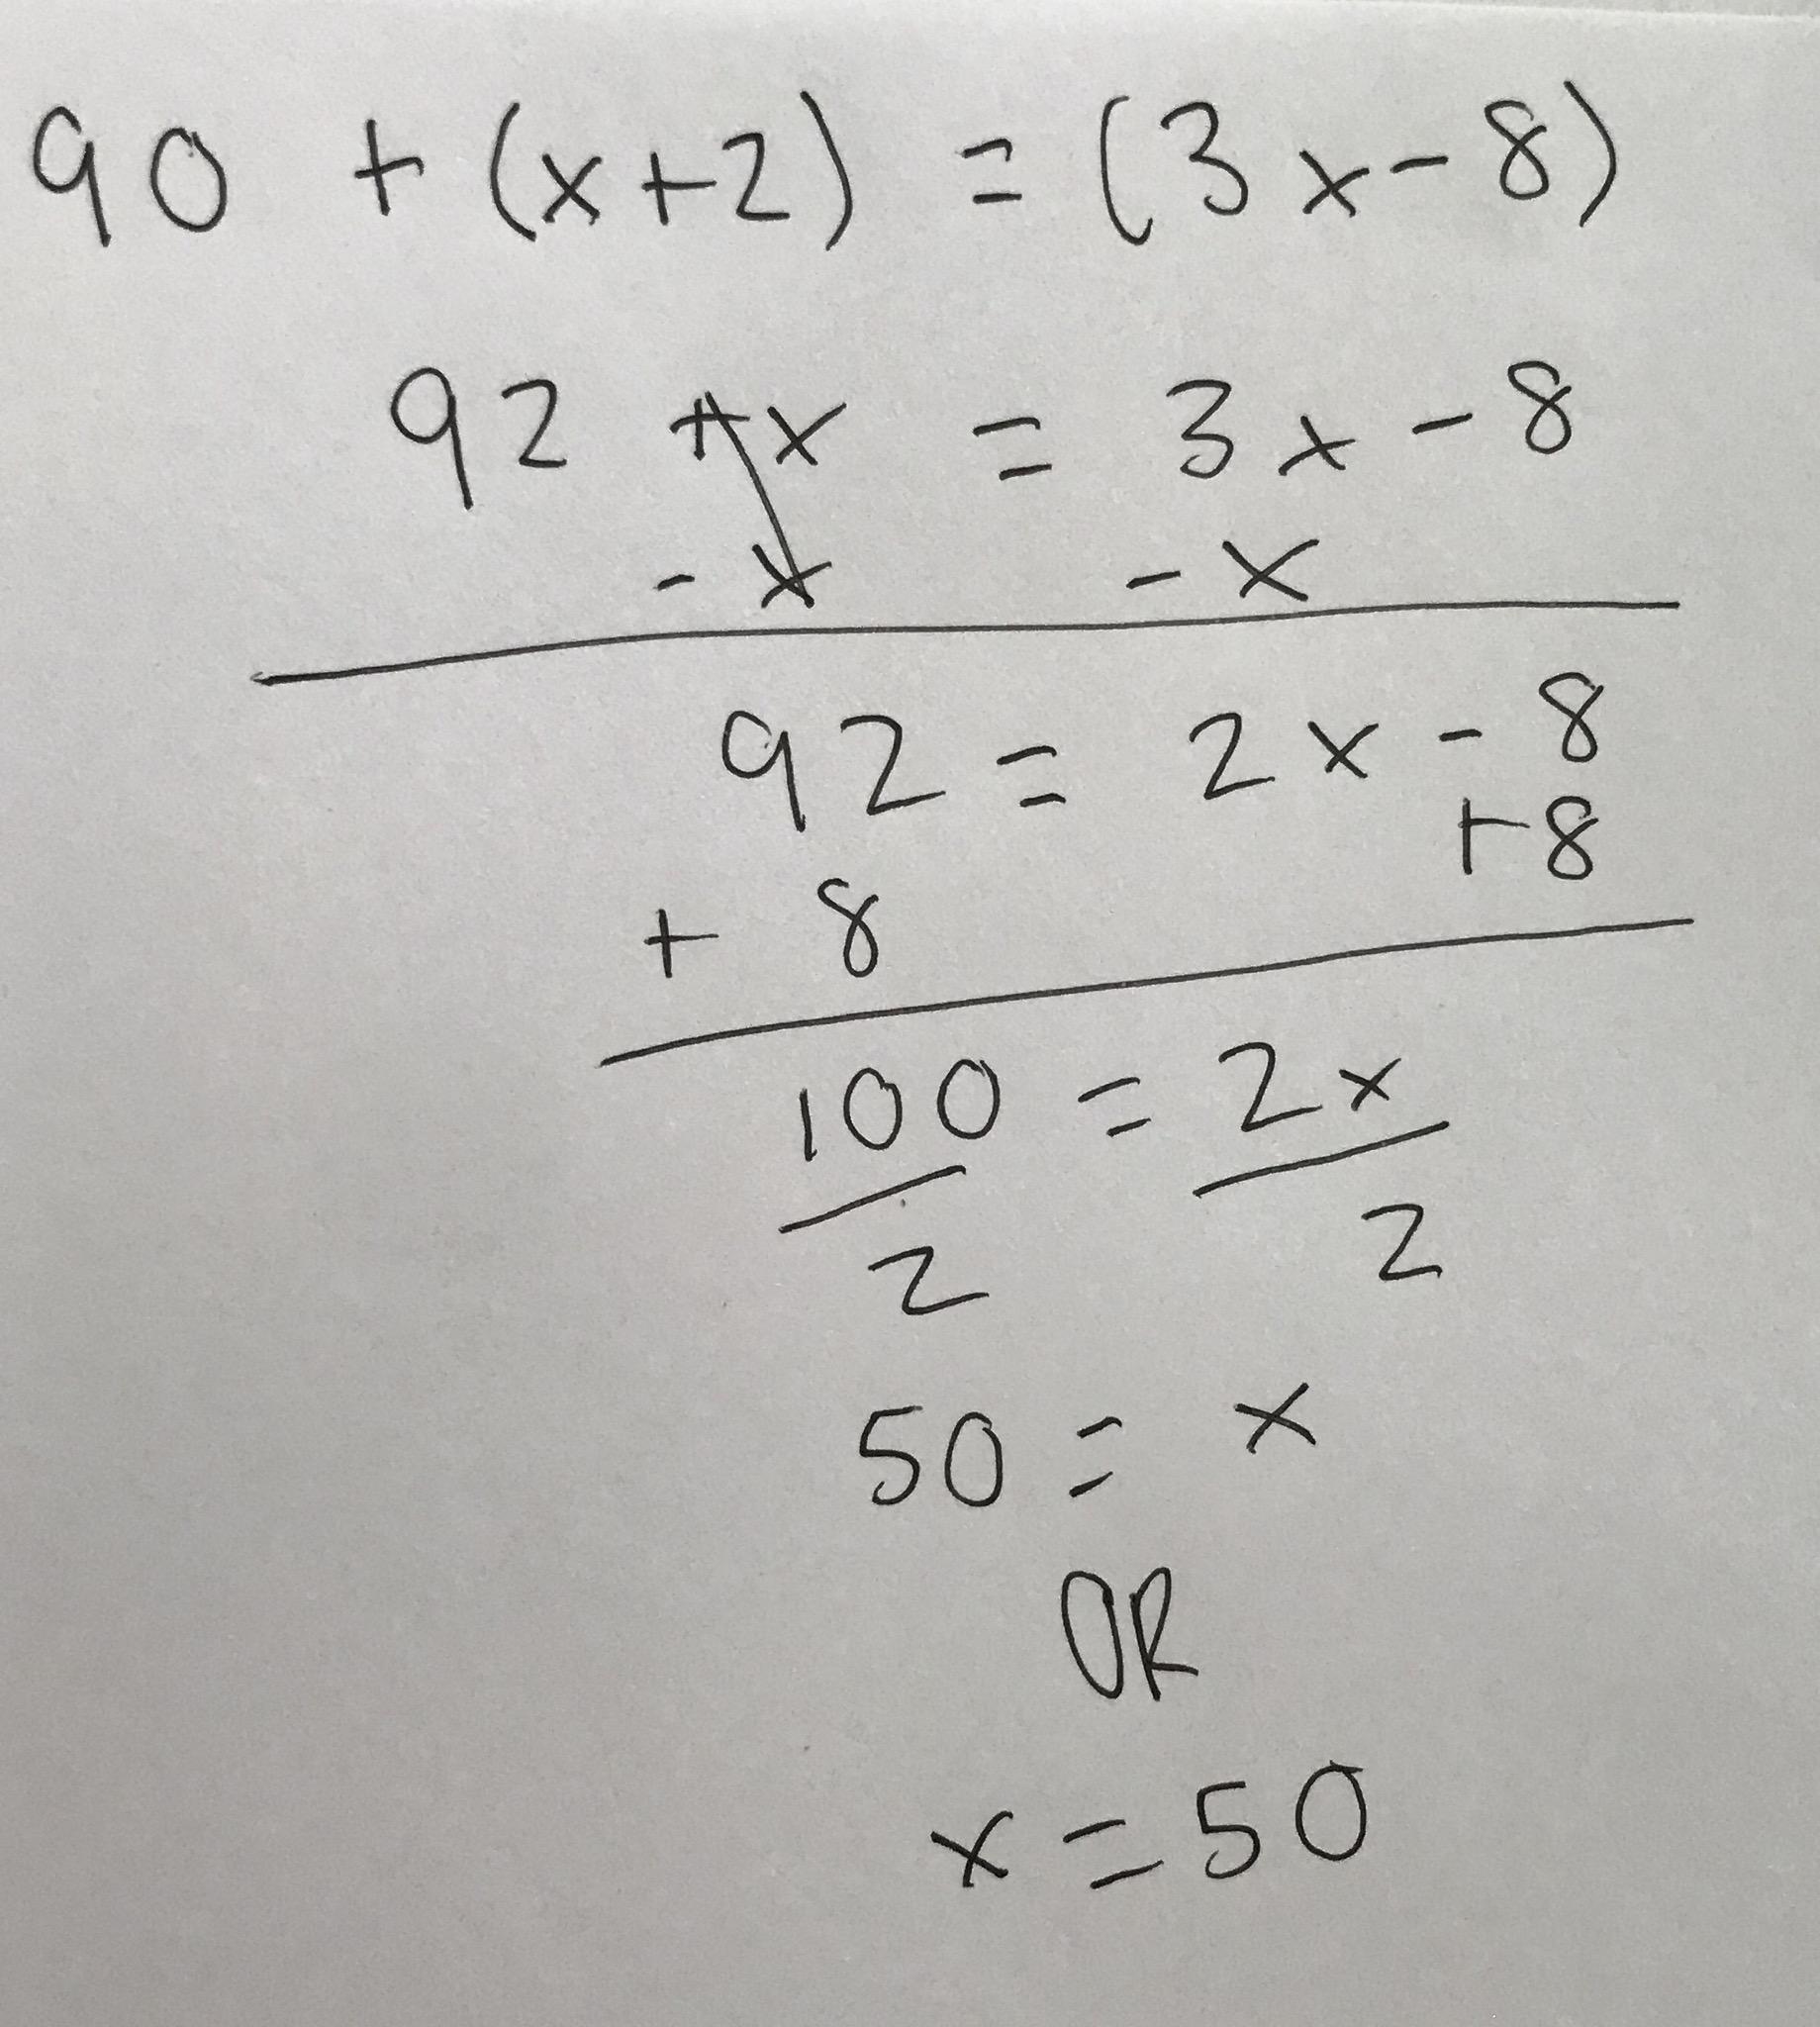 90 + (x+2) = (3x-8)
92 +x = 3x-8
-x -x
92 = 2x-8
+8
+ 8
100 = 2x
2 2
50 = x
OR
x = 50